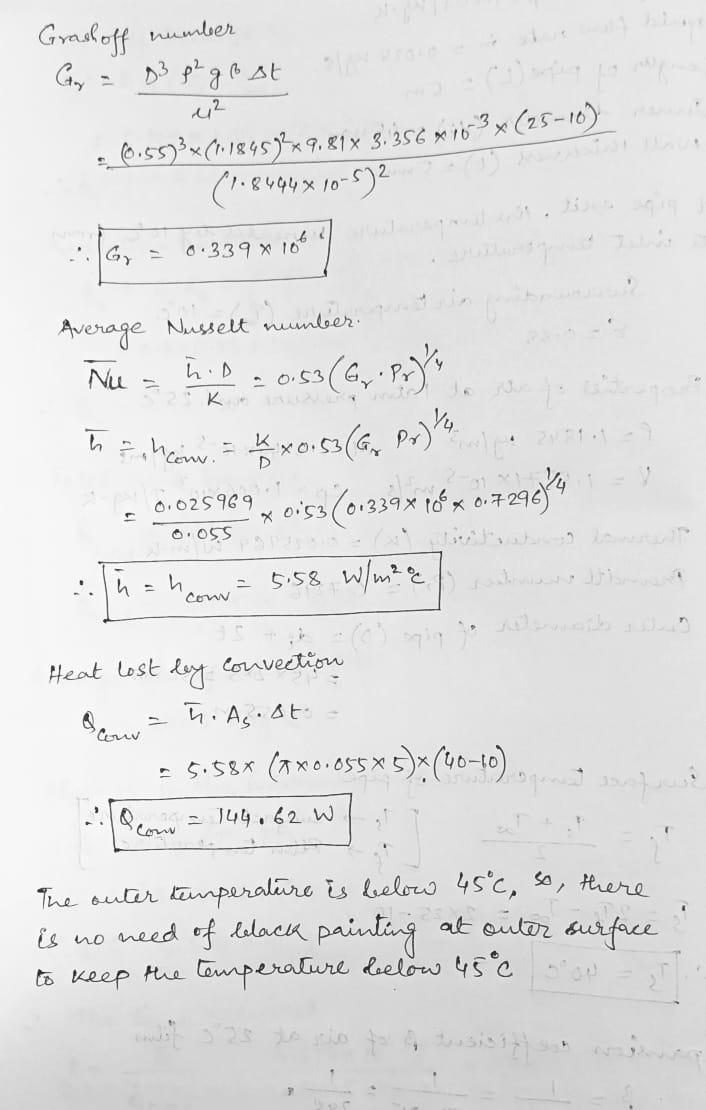 Grashoff number
Gr = D³ ρ² g β Δt / μ²
= (0.55)³ × (1.1845)² × 9.81 × 3.356 × 10⁻³ × (25-10) / (1.8444 × 10⁻⁵)²
∴ Gr = 0.339 × 10⁶
Average Nusselt number.
N̅u̅ = h̅.D / K = 0.53 (Gr . Pr)^1/4
h̅ = hconv. = K/D × 0.53 (Gr Pr)^1/4
= 0.025969 / 0.055 × 0.53 (0.339 × 10⁶ × 0.7296)^1/4
∴ h̅ = hconv = 5.58 W/m² °C
Heat lost by convection
Qconv = h̅ . As . Δt
= 5.58 × (π × 0.055 × 5) × (40-10)
∴ Qconv = 144.62 W
The outer temperature is below 45°C, so, there
is no need of black painting at outer surface
to keep the temperature below 45°C